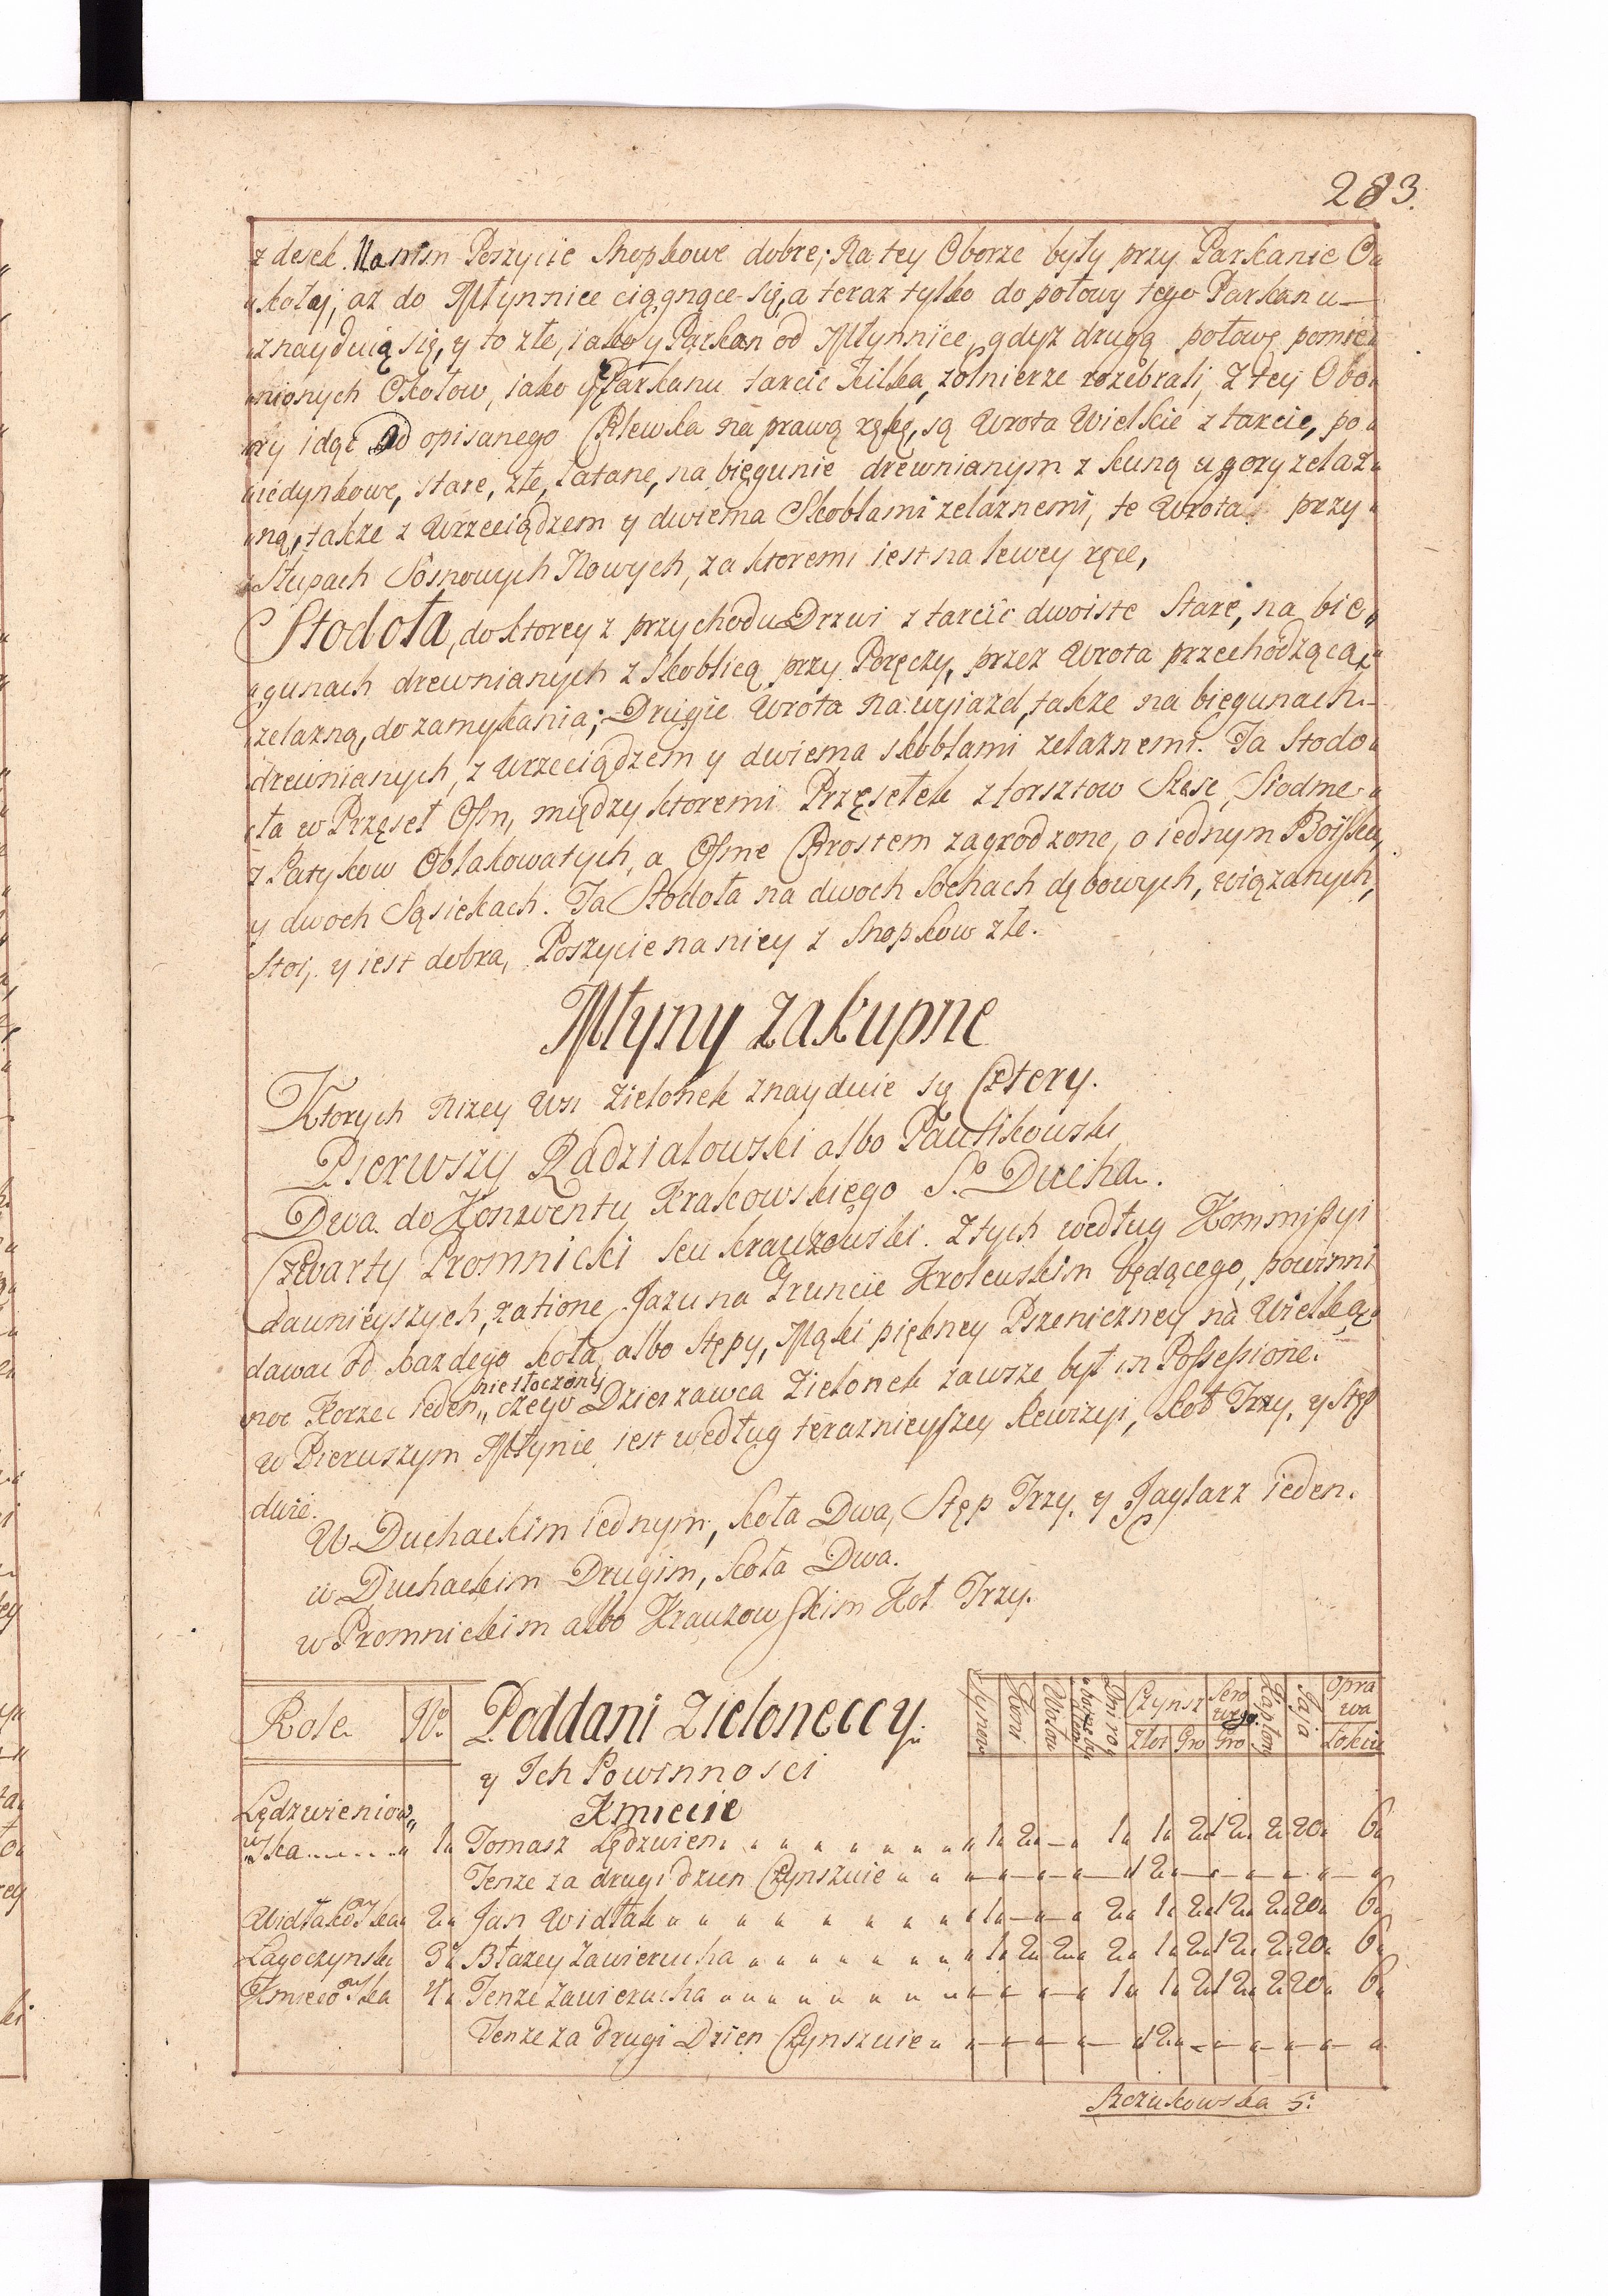 283.
z desek. Na nim Poszycie Snopkowe dobre; Na tey Oborze były przy Parkanie O„
„koły, aż do Młynnice ciągnące się, a teraz tylko do połowy tego Parkanu
„znayduią się, y to złe, iako y Parkan od Młynnice, gdyż drugą połowę pomie„
„nionych Okołow, iako y Parkanu tarcic kilka, żołnierze rozebrali, Z tey Obo„
„ry idąc od opisanego Chlewka na prawą rękę, są Wrota Wielkie z tarcic, po„
„iedynkowe, stare, złe, łatane, na biegunie drewnianym z kuną u gory zelaz„
„ną, takze z Wrzeciądzem y dwiema Skoblami zelaznemi, te Wrota przy
Słupach Sosnowych Nowych, za ktoremi iest na lewey ręce,
Stodoła, do ktorey z przychodu Drzwi z tarcic dwoiste Stare, na bie„
„gunach drewnianych z Skoblicą przy Poręczy, przez Wrota przechodzącą,
zelazną, do zamykania; Drugie Wrota na wyiazd, takze na biegunach
drewnianych, z wrzeciądzem y dwiema skoblami zelaznemi. Ta Stodo„
„ła w Przęseł Osm, między ktoremi Przęsełek z forsztow Szesc, Siodme
z Patykow Obłakowatych, a Osme Chrostem zagrodzone, o iednym Boisku,
y dwoch Sąsiekach. Ta Stodoła na dwoch Sochach dębowych, wiązanych,
Stoi, y iest dobra, Poszycie na niey z Snopkow złe.
Młyny zakupne
Ktorych nizey Wsi Zielonek znayduie się Cztery.
Pierwszy Radziałowski albo Pautikowski
Dwa do Konwentu Krakowskiego S.o Ducha.
Czwarty Promnicki seu Krauzowski. Z tych według Kommissyi
dawnieyszych, ratione Jazu na Gruncie Krolewskim będącego, powinni
dawac od kazdego koła, albo stępy, Mąki piękney Pszeniczney na Wielką„
noc Korzec ieden „niestoczony„ czego Dzierzawca Zielonek zawsze był in Possessione.
w Pierwszym Młynie iest według teraznieyszey Rewizyi, Koł Trzy, y Stęp
dwie.
W Duchackim iednym, koła Dwa, Stęp Trzy, y Jaglarz ieden.
w Duchackim Drugim, koła Dwa.
w Promnickim albo Krauzowskim Koł Trzy.
Role No. Poddani Zieloneccy Koni Wołow Dni roż Czynsz Złot Gro Sero wego. Gro Kapłon Jaja Opra wa Łokcie
y Ich Powinnosci
Lędzwieniow„ Kmiecie
„ska 1„ Tomasz Lędzwien „ 1„ 2„ — „ 1„ 1„ 2„ 12„ 2„ 20„ 6„
Tenze za drugi dzien Czynszuie „ „ — „ — „ — „ — „ 12„ — „ — „ — „ — „ — „
Widłakowska 2„ Jan Widłak „ 1„ — „ — „ 2„ 1„ 2„ 12„ 2„ 20„ 6„
Łagoczynski 3„ Błazey Zawierucha „ 1„ 2„ 2„ 2„ 1„ 2„ 12„ 2„ 20„ 6„
Kmiecowska 4„ Tenze Zawierucha „ — „ — „ — „ 1„ 1„ 2„ 12„ 2„ 20„ 6„
Tenze za drugi Dzien Czynszuie „ — „ — „ — „ — „ 12„ — „ — „ — „ — „ — „
Szczukowska 5: